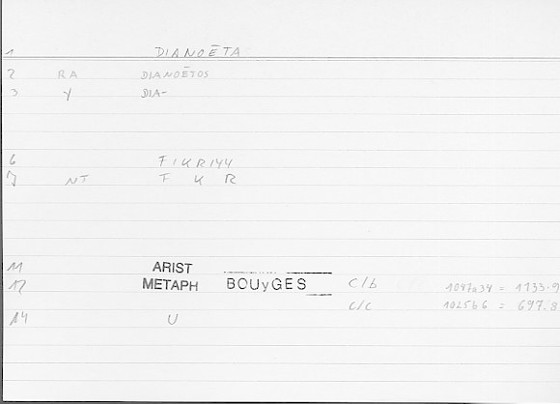 1 DIANOĒTA
2 RA DIANOĒTOS
3 Y DIA-
6 FIKRIYY
7 NT F K R
11 ARIST
12 METAPH BOUyGES C/b = 1133.9
C/c 1025b6 = 697.8
14 U